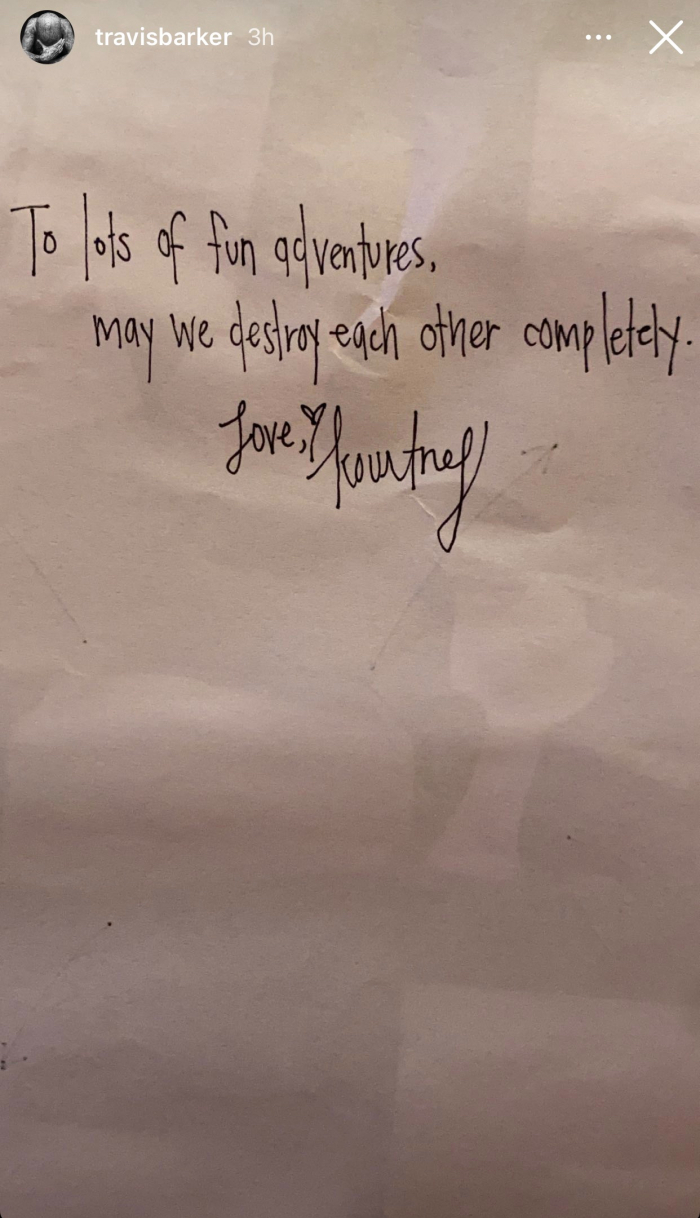 travisbarker 3h
To lots of fun adventures,
may we destroy each other completely.
Love, Kourtney